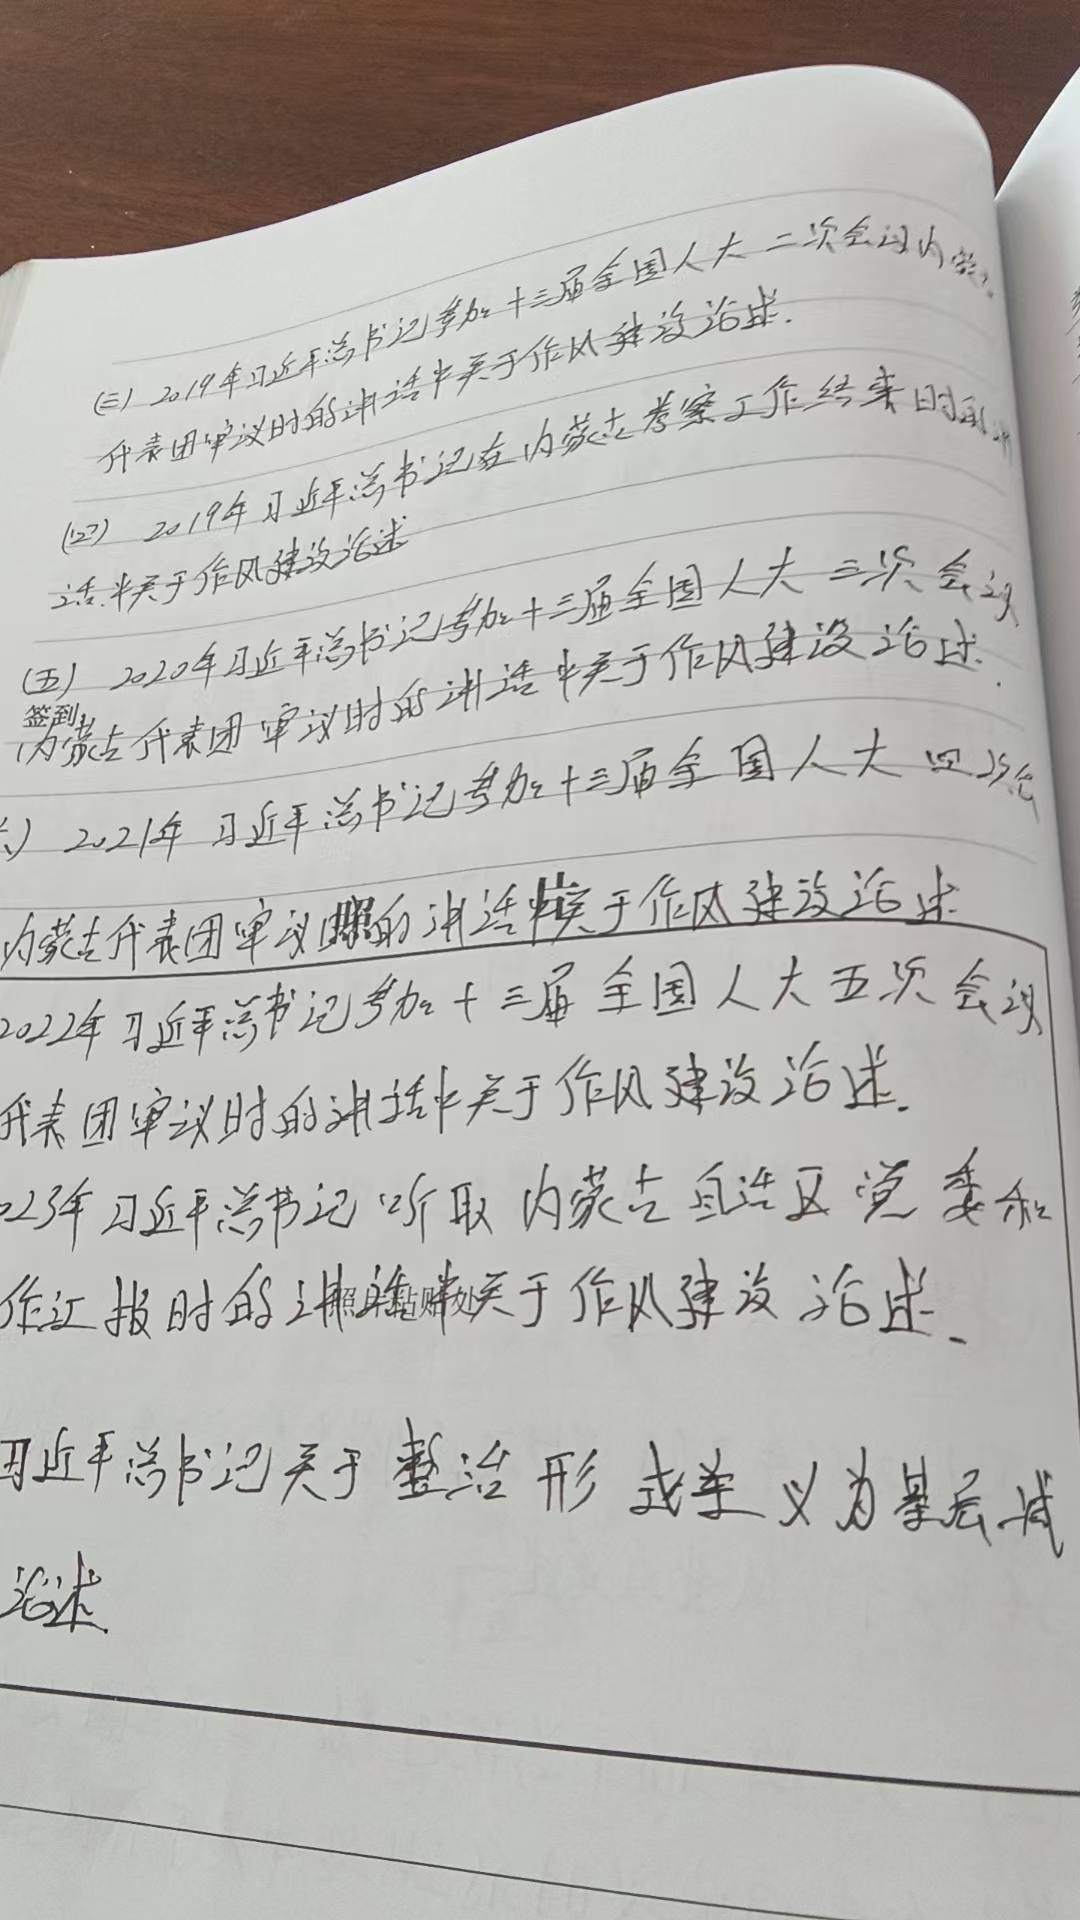 (三) 2019年习近平总书记参加十三届全国人大二次会议内蒙
代表团审议时的讲话中关于作风建设论述.
(四) 2019年习近平总书记在内蒙古考察工作结束时的讲
话中关于作风建设论述
(五) 2020年习近平总书记参加十三届全国人大三次会议
签到
内蒙古代表团审议时的讲话中关于作风建设论述.
) 2021年习近平总书记参加十三届全国人大四次会
内蒙古代表团审议时的讲话中关于作风建设论述
2022年习近平总书记参加十三届全国人大五次会议
代表团审议时的讲话中关于作风建设论述.
023年习近平总书记听取内蒙古自治区党委和
作汇报时的讲话中关于作风建设论述.
照片粘贴处
习近平总书记关于整治形式主义为基层减
论述.